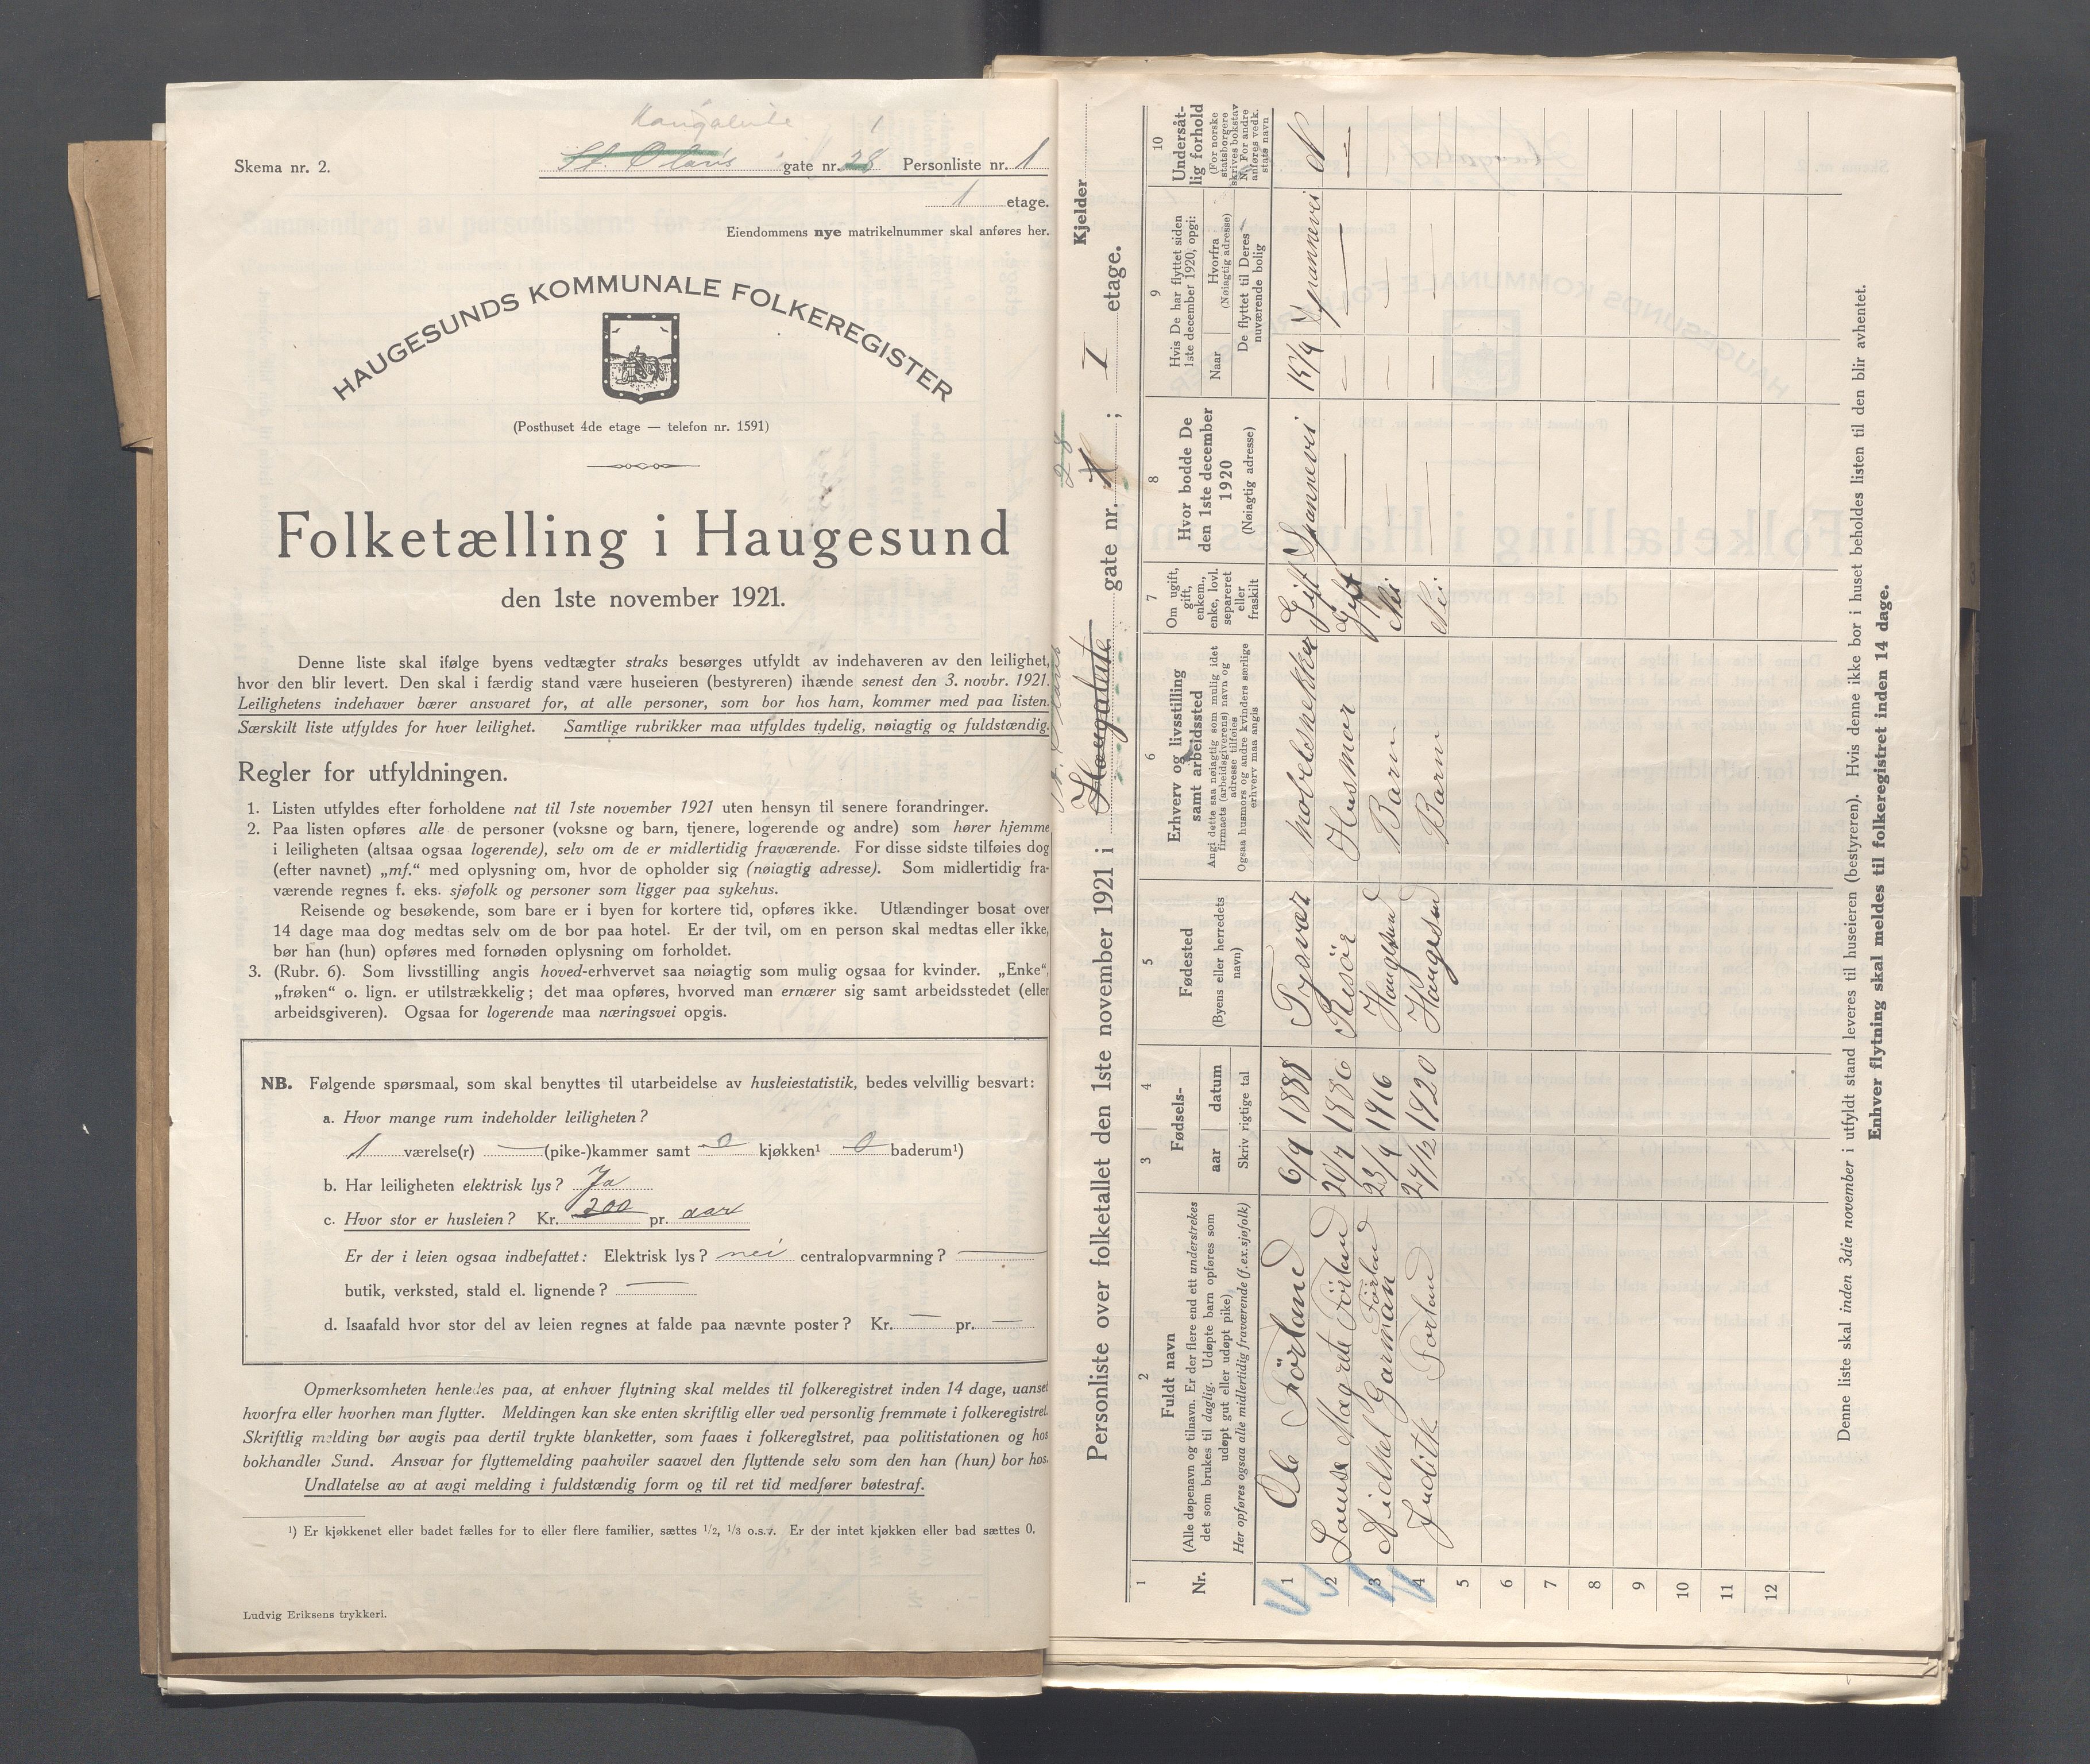 Haugaleite 1
Skema nr. 2. St. Olavs gate nr. 28 Personliste nr. 1
1 etage.
Eiendommens nye matrikelnummer skal anføres her.
HAUGESUNDS KOMMUNALE FOLKEREGISTER
(Posthuset 4de etage — telefon nr. 1591)
Folketælling i Haugesund
den 1ste november 1921.
Denne liste skal ifølge byens vedtægter straks besørges utfyldt av indehaveren av den leilighet,
hvor den blir levert. Den skal i færdig stand være huseieren (bestyreren) ihænde senest den 3. novbr. 1921.
Leilighetens indehaver bærer ansvaret for, at alle personer, som bor hos ham, kommer med paa listen.
Særskilt liste utfyldes for hver leilighet. Samtlige rubrikker maa utfyldes tydelig, nøiagtig og fuldstændig.
Regler for utfyldningen.
1. Listen utfyldes efter forholdene nat til 1ste november 1921 uten hensyn til senere forandringer.
2. Paa listen opføres alle de personer (voksne og barn, tjenere, logerende og andre) som hører hjemme
i leiligheten (altsaa ogsaa logerende), selv om de er midlertidig fraværende. For disse sidste tilføies dog
(efter navnet) „mf.“ med oplysning om, hvor de opholder sig (nøiagtig adresse). Som midlertidig fra-
værende regnes f. eks. sjøfolk og personer som ligger paa sykehus.
Reisende og besøkende, som bare er i byen for kortere tid, opføres ikke. Utlændinger bosat over
14 dage maa dog medtas selv om de bor paa hotel. Er der tvil, om en person skal medtas eller ikke,
bør han (hun) opføres med fornøden oplysning om forholdet.
3. (Rubr. 6). Som livsstilling angis hoved-erhvervet saa nøiagtig som mulig ogsaa for kvinder. „Enke“,
„frøken“ o. lign. er utilstrækkelig; det maa opføres, hvorved man ernærer sig samt arbeidsstedet (eller
arbeidsgiveren). Ogsaa for logerende maa næringsvei opgis.
NB. Følgende spørsmaal, som skal benyttes til utarbeidelse av husleiestatistik, bedes velvillig besvart:
a. Hvor mange rum indeholder leiligheten?
1 værelse(r) — (pike-)kammer samt 0 kjøkken¹ 0 baderum¹)
b. Har leiligheten elektrisk lys? Ja
c. Hvor stor er husleien? Kr. 300 pr. aar
Er der i leien ogsaa indbefattet: Elektrisk lys? nei centralopvarmning? —
butik, verksted, stald el. lignende? —
d. Isaafald hvor stor del av leien regnes at falde paa nævnte poster? Kr. — pr. —
Opmerksomheten henledes paa, at enhver flytning skal meldes til folkeregistret inden 14 dage, uanset
hvorfra eller hvorhen man flytter. Meldingen kan ske enten skriftlig eller ved personlig fremmøte i folkeregistret.
Skriftlig melding bør avgis paa dertil trykte blanketter, som faaes i folkeregistret, paa politistationen og hos
bokhandler Sund. Ansvar for flyttemelding paahviler saavel den flyttende selv som den han (hun) bor hos.
Undlatelse av at avgi melding i fuldstændig form og til ret tid medfører bøtestraf.
¹) Er kjøkkenet eller badet fælles for to eller flere familier, sættes 1/2, 1/3 o.s.v. Er der intet kjøkken eller bad sættes 0.
Ludvig Eriksens trykkeri.
St. Olavs 28 Kjelder
Personliste over folketallet den 1ste november 1921 i Haugaleite gate nr. 1; I etage.
1 2 3 4 5 6 7 8 9 10
Nr.
Fuldt navn
(Alle døpenavn og tilnavn. Er der flere end ett understrekes
det som brukes til daglig. Udøpte barn opføres som
udøpt gut eller udøpt pike)
Her opføres ogsaa alle midlertidig fraværende (f.ex. sjøfolk)
Fødsels-
aar datum
Skriv rigtige tal
Fødested
(Byens eller herredets
navn)
Erhverv og livsstilling
samt arbeidssted
Angi dette saa nøiagtig som mulig idet
firmaets (arbeidsgiverens) navn og
adresse tilføies
Ogsaa husmors og andre kvinders særlige
erhverv maa angis
Om ugift,
gift,
enkem.,
enke, lovl.
separeret
eller
fraskilt
Hvor bodde De
den 1ste december
1920
(Nøiagtig adresse)
Hvis De har flyttet siden
1ste december 1920, opgi:
Naar
Hvorfra
(Nøiagtig adresse)
De flyttet til Deres
nuværende bolig
Undersåt-
lig forhold
(For norske
statsborgere
skrives bokstav
N. For andre
anføres vedk.
stats navn
1 Ole Förland 6/9 1888 Tysvær Möbelsnekker Gift Spannevei 15/4 Spannevei N
2 Lauise Magrete Förland 20/7 1886 Risör Husmor Gift — — — —
3 Aidkel Garmann Förland 23/9 1916 Haugesund Barn Nei — — —
4 Judith Forland 24/12 1920 Haugesund Barn Nei — — —
5
6
7
8
9
10
11
12
Denne liste skal inden 3die november i utfyldt stand leveres til huseieren (bestyreren). Hvis denne ikke bor i huset beholdes listen til den blir avhentet.
Enhver flytning skal meldes til folkeregistret inden 14 dage.